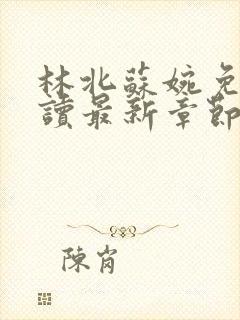 林北蘇婉免
讀最新章節
陳肖